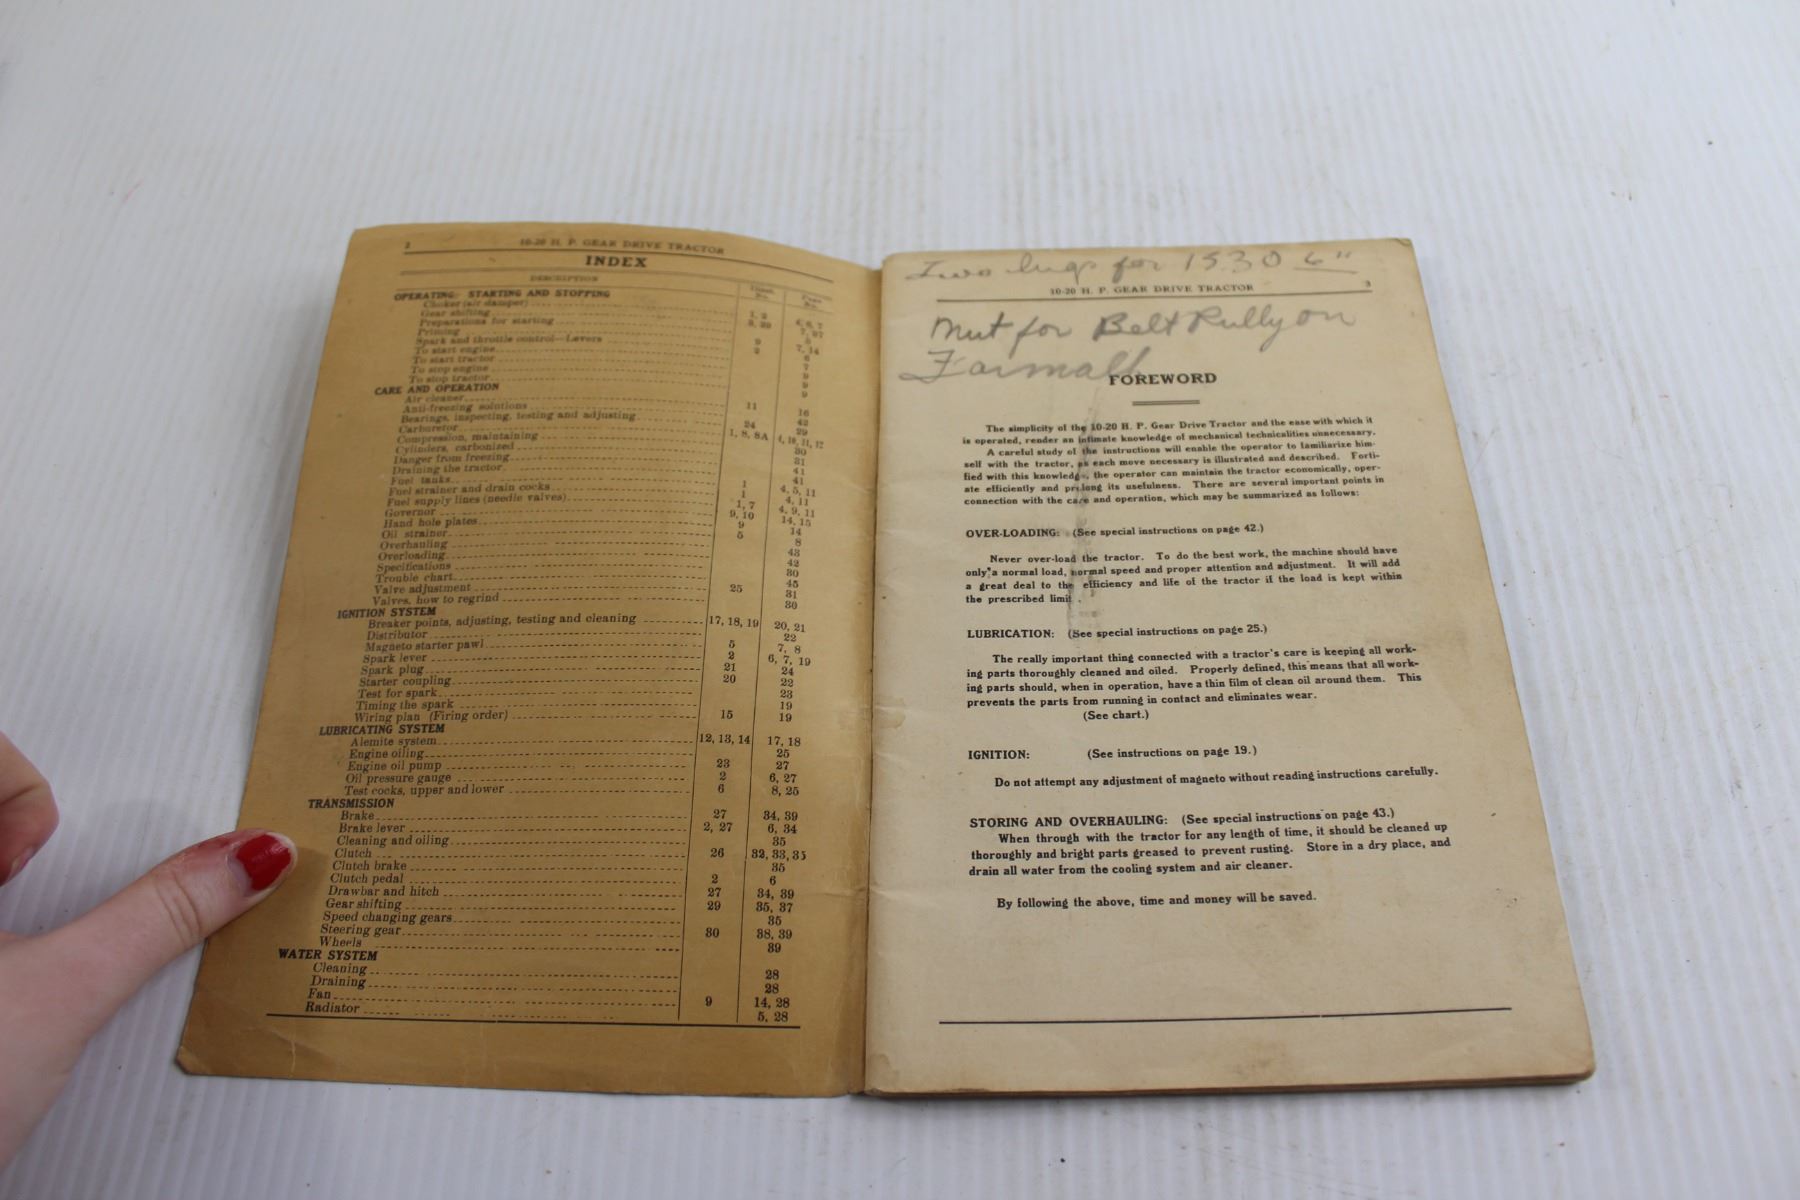 2
10-20 H. P. GEAR DRIVE TRACTOR
INDEX
DESCRIPTION
OPERATING: STARTING AND STOPPING
Choker (air damper)
Gear shifting 1, 2 4, 6, 7
Preparations for starting
Priming
Spark and throttle control—Levers
To start engine
To start tractor
To stop engine
To stop tractor
CARE AND OPERATION
Air cleaner 11 16
Anti-freezing solutions 42
Bearings, inspecting, testing and adjusting 24 29
Carburetor 1, 8, 8A 4, 10, 11, 12
Compression, maintaining 30
Cylinders, carbonized 31
Danger from freezing 41
Draining the tractor 41
Fuel tanks 1 4, 5, 11
Fuel strainer and drain cocks 1 4, 11
Fuel supply lines (needle valves) 1, 7 4, 9, 11
Governor 9, 10 14, 15
Hand hole plates 9 14
Oil strainer 5 8
Overhauling 43
Overloading 42
Specifications 30
Trouble chart 45
Valve adjustment 25 31
Valves, how to regrind 30
IGNITION SYSTEM
Breaker points, adjusting, testing and cleaning 17, 18, 19 20, 21
Distributor 22
Magneto starter pawl 5 7, 8
Spark lever 2 6, 7, 19
Spark plug 21 24
Starter coupling 20 22
Test for spark 23
Timing the spark 19
Wiring plan (Firing order) 15 19
LUBRICATING SYSTEM
Alemite system 12, 13, 14 17, 18
Engine oiling 25
Engine oil pump 23 27
Oil pressure gauge 2 6, 27
Test cocks, upper and lower 6 8, 25
TRANSMISSION
Brake 27 34, 39
Brake lever 2, 27 6, 34
Cleaning and oiling 35
Clutch 26 32, 33, 35
Clutch brake 35
Clutch pedal 2 6
Drawbar and hitch 27 34, 39
Gear shifting 29 35, 37
Speed changing gears 35
Steering gear 30 38, 39
Wheels 39
WATER SYSTEM
Cleaning 28
Draining 28
Fan 9 14, 28
Radiator 5, 28
Two lugs for 1530 6"
10-20 H. P. GEAR DRIVE TRACTOR 3
Nut for Belt Pully on
Farmall
FOREWORD
The simplicity of the 10-20 H. P. Gear Drive Tractor and the ease with which it
is operated, render an intimate knowledge of mechanical technicalities unnecessary.
A careful study of the instructions will enable the operator to familiarize him-
self with the tractor, as each move necessary is illustrated and described. Forti-
fied with this knowledge, the operator can maintain the tractor economically, oper-
ate efficiently and prolong its usefulness. There are several important points in
connection with the care and operation, which may be summarized as follows:
OVER-LOADING: (See special instructions on page 42.)
Never over-load the tractor. To do the best work, the machine should have
only a normal load, normal speed and proper attention and adjustment. It will add
a great deal to the efficiency and life of the tractor if the load is kept within
the prescribed limit.
LUBRICATION: (See special instructions on page 25.)
The really important thing connected with a tractor's care is keeping all work-
ing parts thoroughly cleaned and oiled. Properly defined, this means that all work-
ing parts should, when in operation, have a thin film of clean oil around them. This
prevents the parts from running in contact and eliminates wear.
(See chart.)
IGNITION: (See instructions on page 19.)
Do not attempt any adjustment of magneto without reading instructions carefully.
STORING AND OVERHAULING: (See special instructions on page 43.)
When through with the tractor for any length of time, it should be cleaned up
thoroughly and bright parts greased to prevent rusting. Store in a dry place, and
drain all water from the cooling system and air cleaner.
By following the above, time and money will be saved.